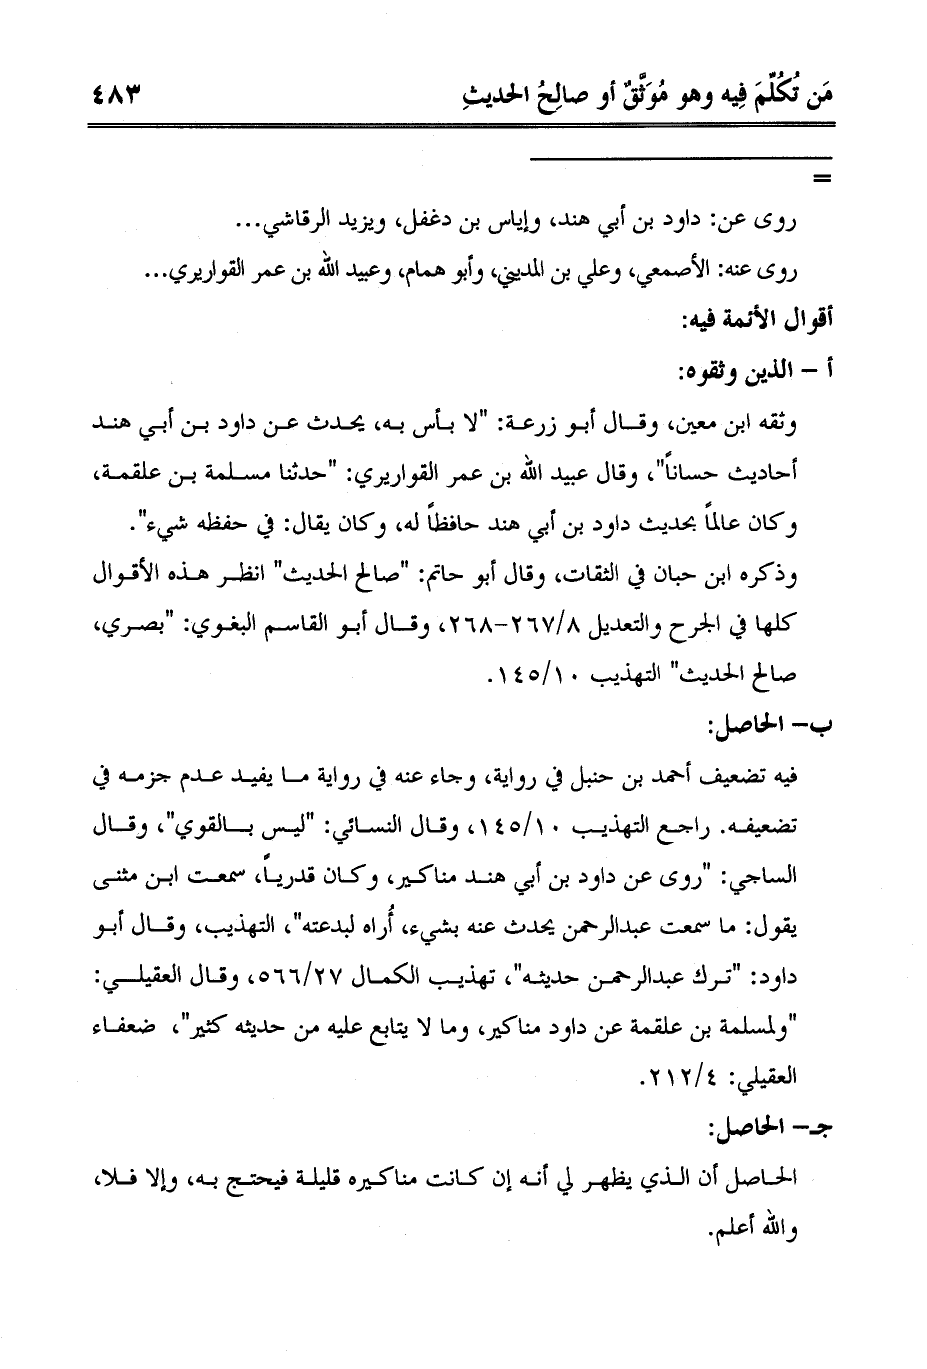 مَن تُكُلِّمَ فِيه وهو مُوَثَّقٌ أو صالِحُ الحديثِ ٤٨٣
=
روى عن: داود بن أبي هند، وإياس بن دغفل، ويزيد الرقاشي...
روى عنه: الأصمعي، وعلي بن المديني، وأبو همام، وعبيد الله بن عمر القواريري...
أقوال الأئمة فيه:
أ – الذين وثقوه:
وثقه ابن معين، وقال أبو زرعة: "لا بأس به، يحدث عن داود بن أبي هند
أحاديث حساناً"، وقال عبيد الله بن عمر القواريري: "حدثنا مسلمة بن علقمة،
وكان عالماً بحديث داود بن أبي هند حافظاً له، وكان يقال: في حفظه شيء".
وذكره ابن حبان في الثقات، وقال أبو حاتم: "صالح الحديث" انظر هذه الأقوال
كلها في الجرح والتعديل ٢٦٧/٨–٢٦٨، وقال أبو القاسم البغوي: "بصري،
صالح الحديث" التهذيب ١٤٥/١٠.
ب– الحاصل:
فيه تضعيف أحمد بن حنبل في رواية، وجاء عنه في رواية ما يفيد عدم جزمه في
تضعيفه. راجع التهذيب ١٤٥/١٠، وقال النسائي: "ليس بالقوي"، وقال
الساجي: "روى عن داود بن أبي هند مناكير، وكان قدرياً، سمعت ابن مثنى
يقول: ما سمعت عبدالرحمن يحدث عنه بشيء، أُراه لبدعته"، التهذيب، وقال أبو
داود: "ترك عبدالرحمن حديثه"، تهذيب الكمال ٥٦٦/٢٧، وقال العقيلي:
"ولمسلمة بن علقمة عن داود مناكير، وما لا يتابع عليه من حديثه كثير"، ضعفاء
العقيلي: ٢١٢/٤.
جـ– الحاصل:
الحاصل أن الذي يظهر لي أنه إن كانت مناكيره قليلة فيحتج به، وإلا فلا،
والله أعلم.